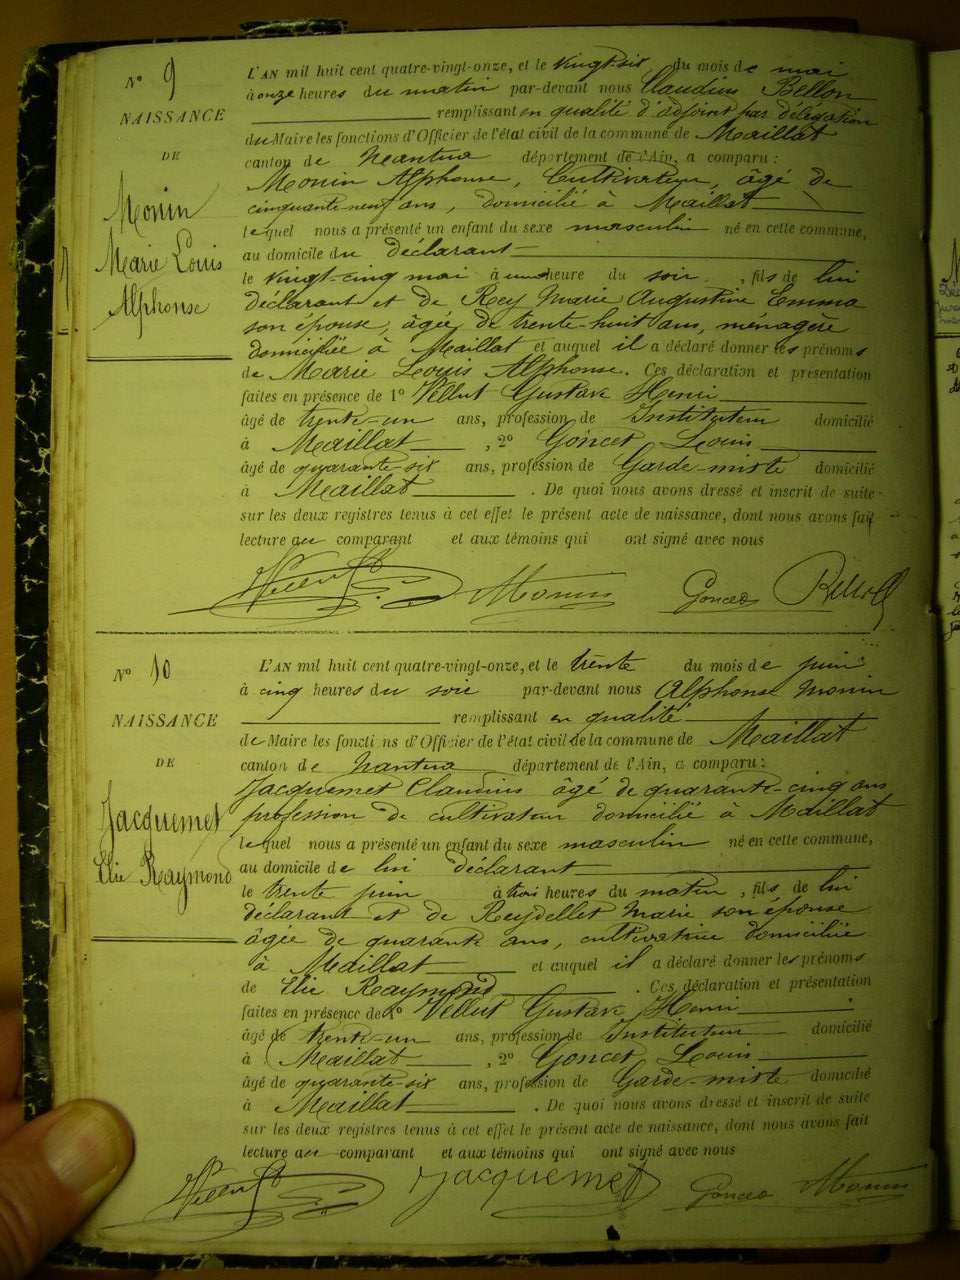 N° 9
NAISSANCE
DE
Monin
Marie Louis
Alphonse
L'AN mil huit cent quatre-vingt-onze, et le vingt-six du mois de mai
à onze heures du matin par-devant nous Claudius Bellon
remplissant en qualité d'adjoint par délégation
du Maire les fonctions d'Officier de l'état civil de la commune de Maillat
canton de Nantua département de l'Ain, a comparu :
Monin Alphonse, Cultivateur, âgé de
cinquante-neuf ans, domicilié à Maillat
lequel nous a présenté un enfant du sexe masculin né en cette commune,
au domicile du déclarant
le vingt-cinq mai à une heure du soir, fils de lui
déclarant et de Rey Marie Augustine Emma
son épouse, âgée de trente-huit ans, ménagère
domiciliée à Maillat et auquel il a déclaré donner les prénoms
de Marie Louis Alphonse. Ces déclaration et présentation
faites en présence de 1° Vellut Gustave Henri
âgé de trente-un ans, profession de Instituteur domicilié
à Maillat, 2° Goncet Louis
âgé de quarante-six ans, profession de Garde-mixte domicilié
à Maillat. De quoi nous avons dressé et inscrit de suite
sur les deux registres tenus à cet effet le présent acte de naissance, dont nous avons fait
lecture au comparant et aux témoins qui ont signé avec nous
Vellut Monin Goncet Bellon
N° 10
NAISSANCE
DE
Jacquemet
Elie Raymond
L'AN mil huit cent quatre-vingt-onze, et le trente du mois de juin
à cinq heures du soir par-devant nous Alphonse Monin
remplissant en qualité
de Maire les fonctions d'Officier de l'état civil de la commune de Maillat
canton de Nantua département de l'Ain, a comparu :
Jacquemet Claudius âgé de quarante-cinq ans
profession de cultivateur domicilié à Maillat
lequel nous a présenté un enfant du sexe masculin né en cette commune,
au domicile de lui déclarant
le trente juin à trois heures du matin, fils de lui
déclarant et de Reydellet Marie son épouse
âgée de quarante ans, cultivatrice domiciliée
à Maillat et auquel il a déclaré donner les prénoms
de Elie Raymond. Ces déclaration et présentation
faites en présence de 1° Vellut Gustave Henri
âgé de trente-un ans, profession de Instituteur domicilié
à Maillat, 2° Goncet Louis
âgé de quarante-six ans, profession de Garde-mixte domicilié
à Maillat. De quoi nous avons dressé et inscrit de suite
sur les deux registres tenus à cet effet le présent acte de naissance, dont nous avons fait
lecture au comparant et aux témoins qui ont signé avec nous
Vellut Jacquemet Goncet Monin